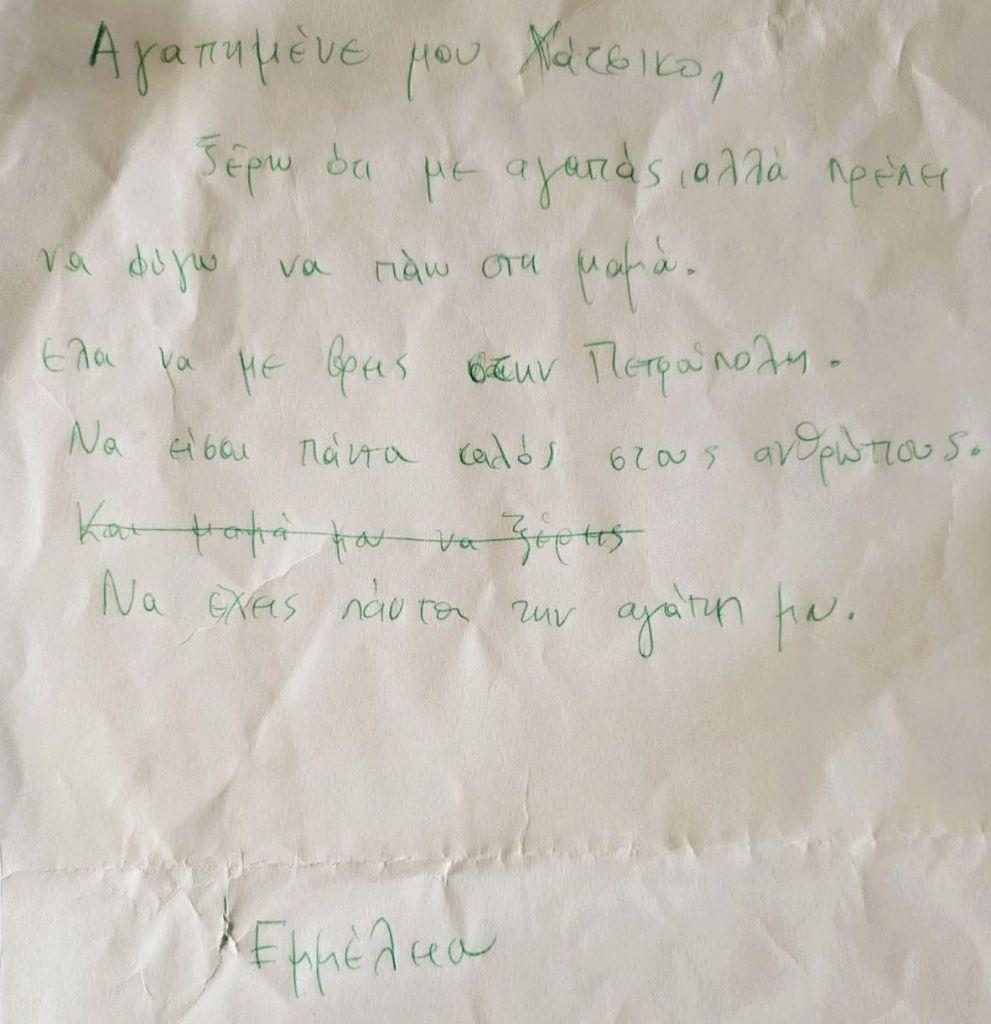 Αγαπημένε μου Χάτσικο,
ξέρω ότι με αγαπάς, αλλά πρέπει
να φύγω να πάω στη μαμά.
Ελα να με βρεις στην Πετρούπολη.
Να είσαι πάντα καλός στους ανθρώπους.
Και μαμά μου να ξέρεις
Να έχεις πάντα την αγάπη μου.
Εμμέλεια